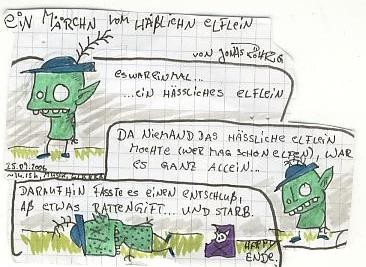 EiN MÄRCHN VOM HÄßLICHN ELFLEiN
VON JONAS
ES WAR EiNMAL...
...EiN HÄSSLiCHES ELFLEiN
DA NiEMAND DAS HÄSSLiCHE ELFLEiN
MOCHTE (WER MAG SCHON ELFEN), WAR
ES GANZ ALLEiN...
25.09.2006
DARAUFHiN FASSTE ES EiNEN ENTSCHLUß,
Aß ETWAS RATTENGiFT... UND STARB.
HAPPY
ENDE.